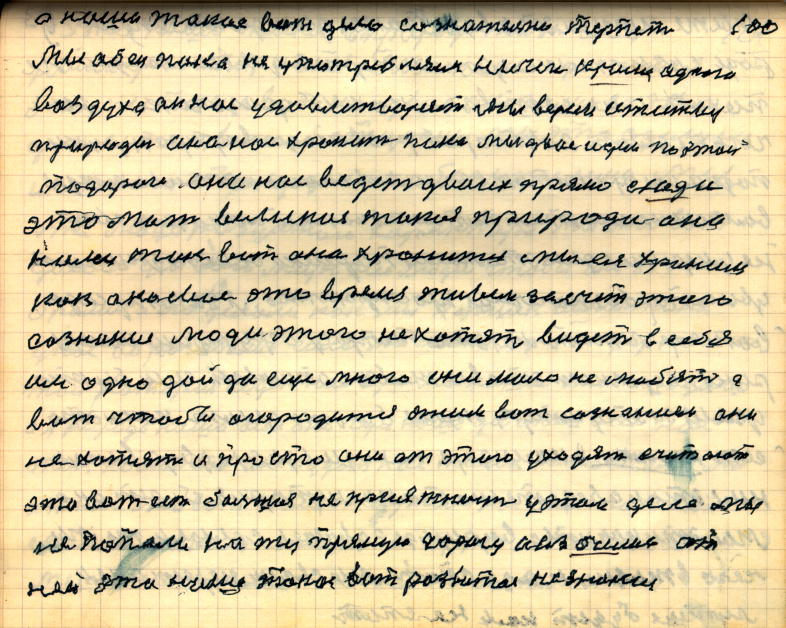 а наше такое вот дело сознательно терпеть 500
мы обои пока не употребляем ничего кроме одного
воздуха он нас удовлетворяет мы верим
природы она нас хронит пока мы двое идем по этой
подороге она нас ведет двоих прямо сюда
это мать великая такая природа она
нами так вот она хронится мы ея храним
как онасвое это время живем засчет этого
сознание люди этого не хотят видет в себя
им одно дай да еще много они мало не любят а
вот чтобы огородится этим вот сознанием они
не хотят и просто они от этого уходят считают
это вот есть большая не приятность у этом деле мы
не попали на ту прямую дорогу а от
ней это наше такое вот развитое незнание